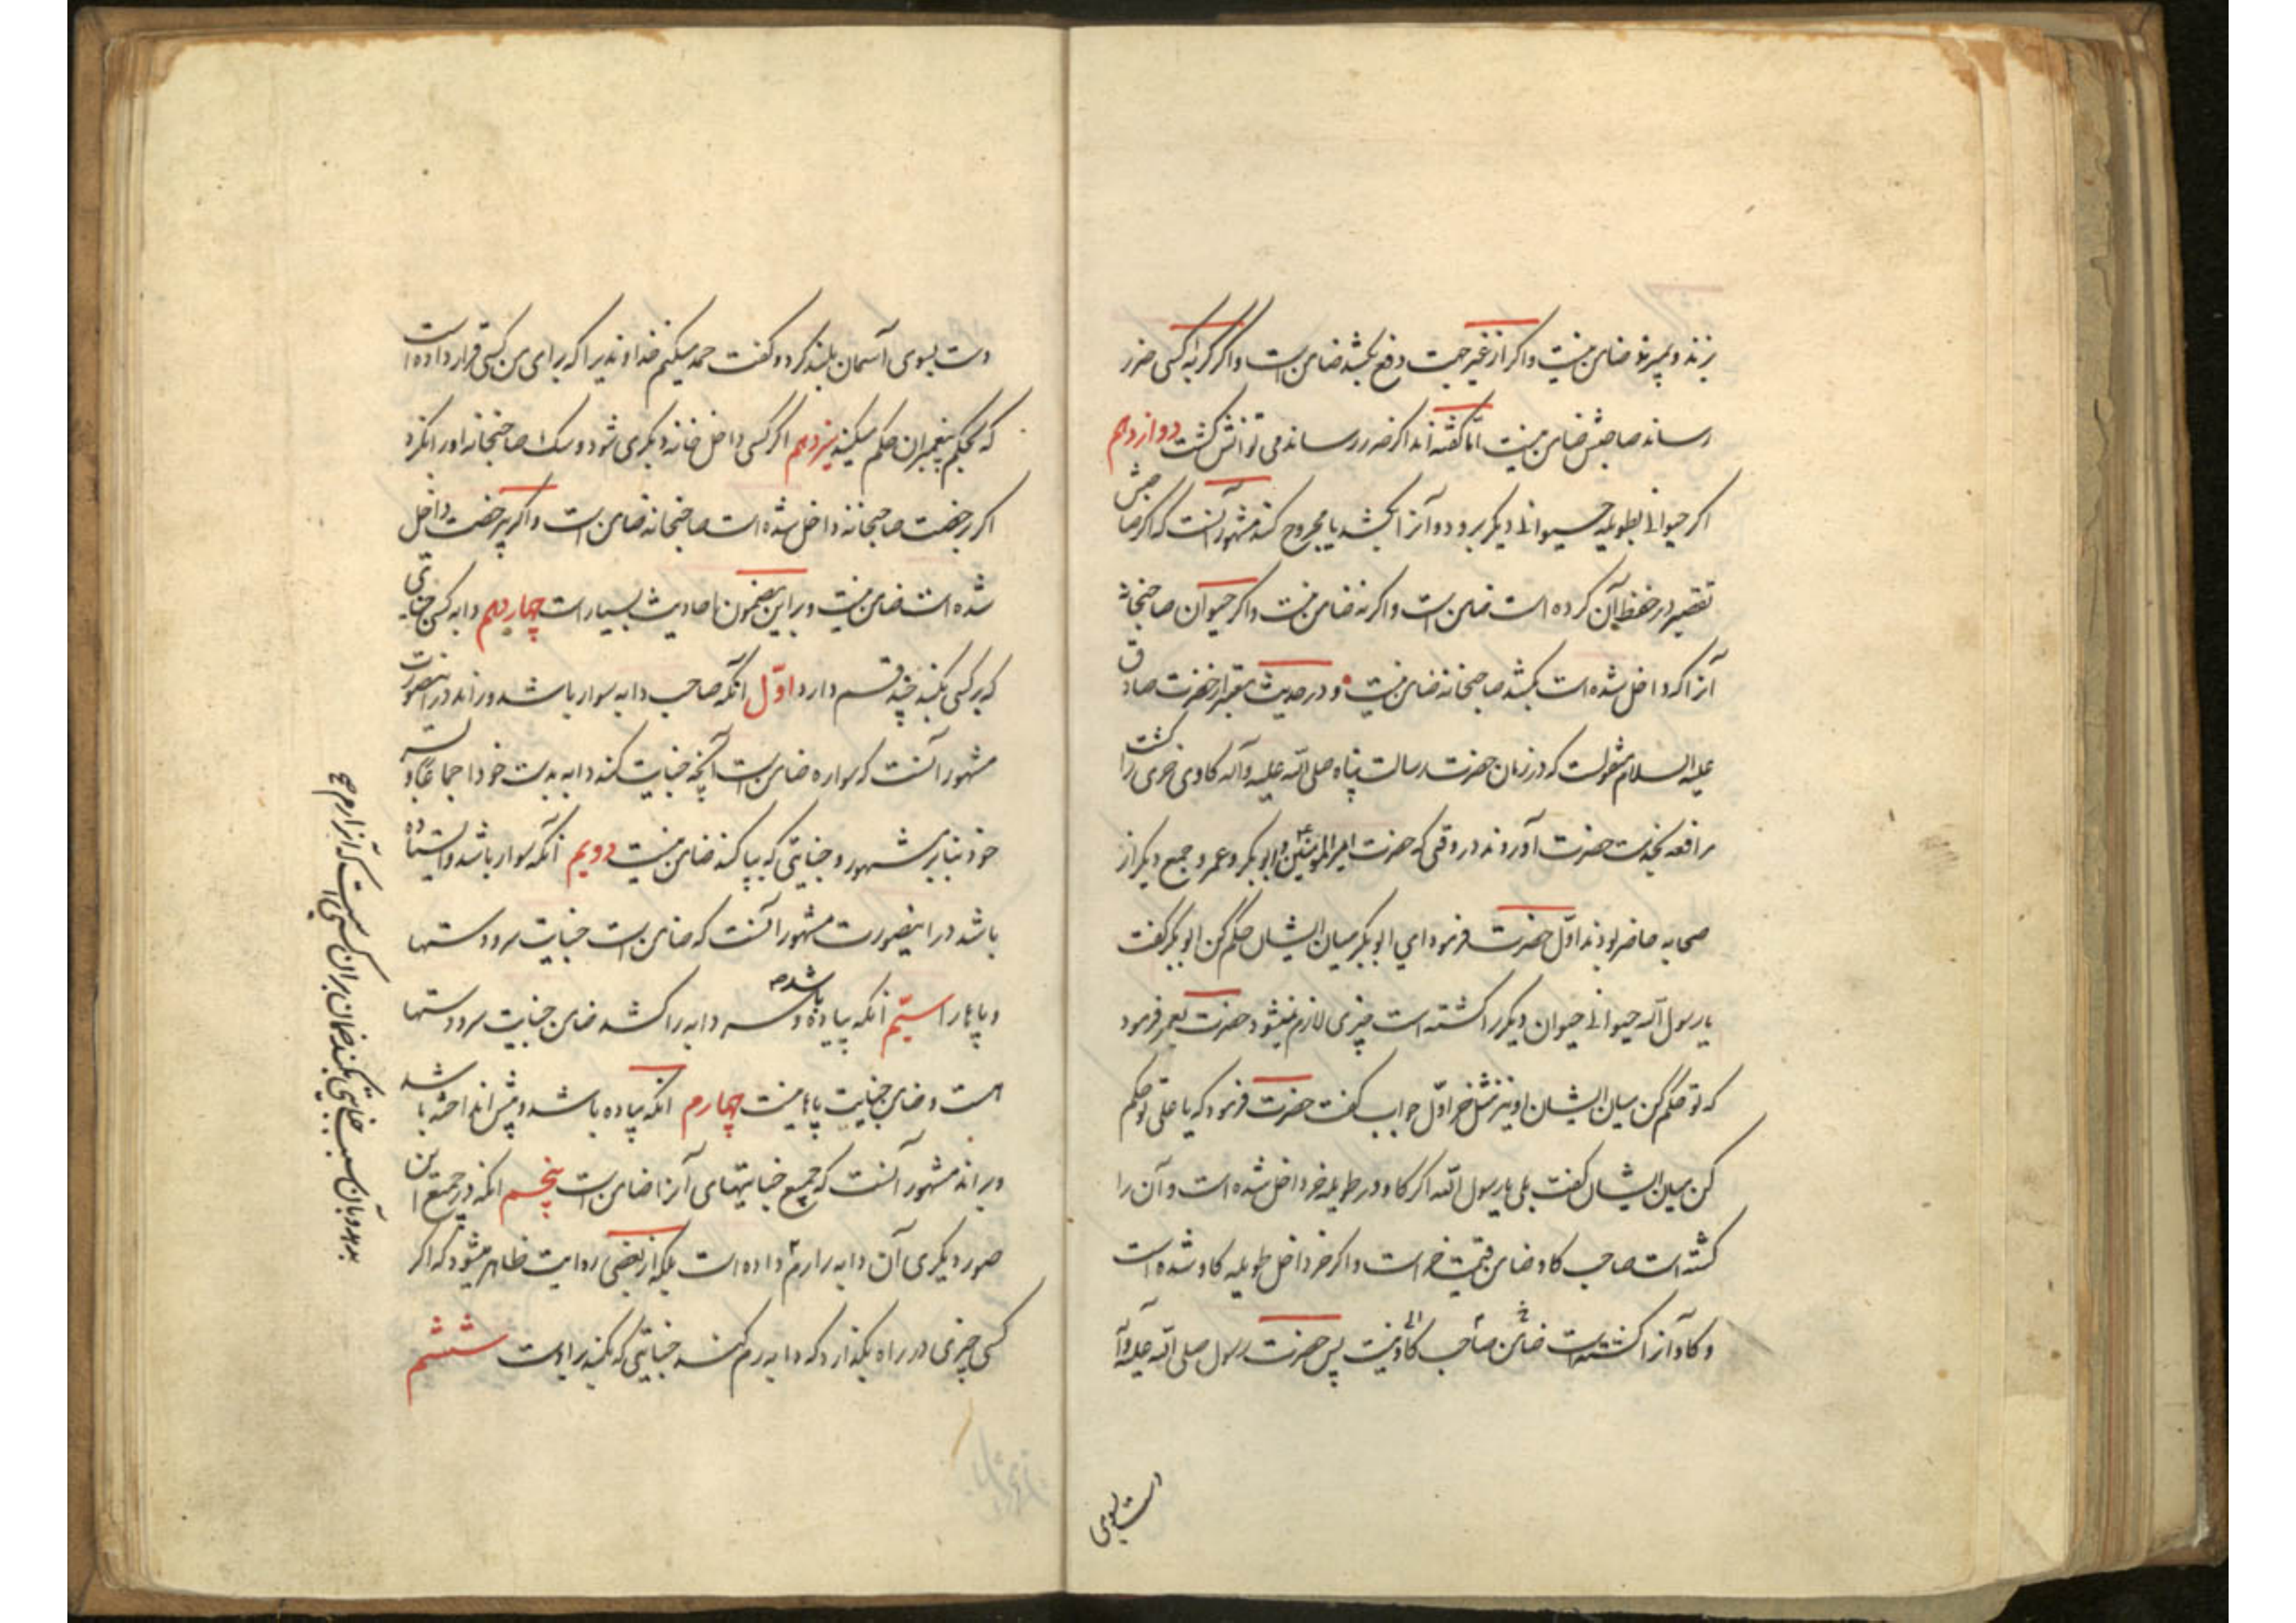 بزند و بمیرد ضامن نیست و اگر از غیر جهت دفع بکشد ضامن است و اگر گربه کسی ضرر
رساند صاحبش ضامن نیست امّا گفته‌اند اگر ضرر رساند می توانش کشت دوازدهم
اگر حیوانی بطویله حیوانی دیگر برود و آنرا بکشد یا مجروح کند مشهور آنست که اگر صاحبش
تقصیر در حفظ آن کرده است ضامن است و اگر نه ضامن نیست و اگر حیوان صاحبخانه
آنرا که داخل شده است بکشد صاحبخانه ضامن نیست و در حدیث معتبر از حضرت صادق
علیه السلام منقولست که در زمان حضرت رسالت پناه صلی الله علیه وآله گاوی خری را کشت
مرافعه بخدمت حضرت آوردند در وقتی که حضرت امیرالمؤمنین و ابوبکر و عمر و جمع دیگر از
صحابه حاضر بودند اوّل حضرت فرمود ای ابوبکر میان ایشان حکم کن ابوبکر گفت
یا رسول الله حیوانی حیوان دیگر را کشته است چیزی لازم نمیشود حضرت بعمر فرمود
که تو حکم کن میان ایشان او نیز مثل اوّل جواب گفت حضرت فرمود که یا علی تو حکم
کن میان ایشان گفت بلی یا رسول الله اگر گاو در طویله خر داخل شده است و آن را
کشته است صاحب گاو ضامن قیمت خر است و اگر خر داخل طویله گاو شده است
و گاو آنرا کشته است ضامن صاحب گاو نیست پس حضرت رسول صلی الله علیه وآله
دست بسوی
دست بسوی آسمان بلند کرد و گفت حمد میکنم خداوندیرا که برای من کسی قرار داده است
که بحکم پیغمبران حکم میکند سیزدهم اگر کسی داخل خانه دیگری شود و سک صاحبخانه او را بگزد
اگر برخصت صاحبخانه داخل شده است صاحبخانه ضامن است و اگر بی رخصت داخل
شده است ضامن نیست و بر این مضمون احادیث بسیار است چهاردهم دابه کسی جنایتی
که بر کسی بکند چند قسم دارد اوّل آنکه صاحب دابه سوار باشد و براند در اینصورت
مشهور آنست که سواره ضامن است آنچه جنایت کند دابه بدست خود اجماعاً و بسر
خود بنا بر مشهور و جنایتی که بپا کند ضامن نیست دویم آنکه سوار باشد و ایستاده
باشد در اینصورت مشهور آنست که ضامن است جنایت سر و دستها
و پاها را سیّم آنکه پیاده باشد و سر دابه را کشد ضامن جنایت سر و دستها
است و ضامن جنایت پاها نیست چهارم آنکه پیاده باشد و پیش انداخته باشد
و براند مشهور آنست که جمیع جنایتهای آنرا ضامن است پنجم آنکه در جمیع این
صور دیگری آن دابه را رم داده است بلکه از بعضی روایت ظاهر میشود که اگر
کسی چیزی در راه بگذارد که دابه رم کند جنایتی که بکند بر اوست ششم
بدود و بآن سبب جنایتی بکند ضمان بر آن کسی است که آنرا رم